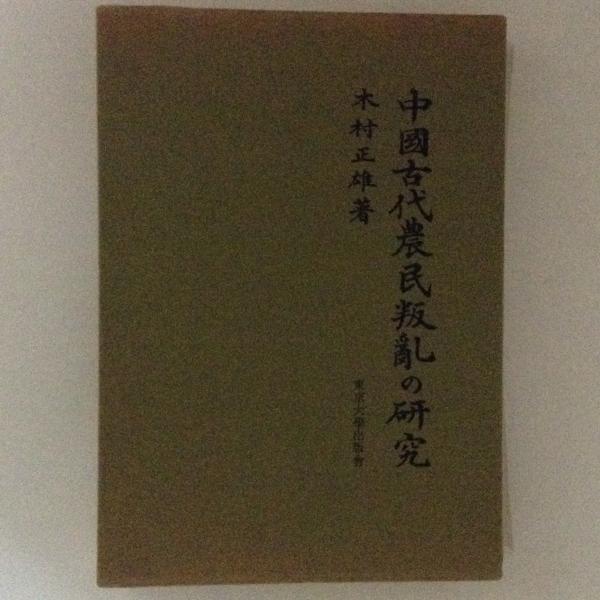 中國古代農民叛亂の研究
木村正雄著
東京大學出版會